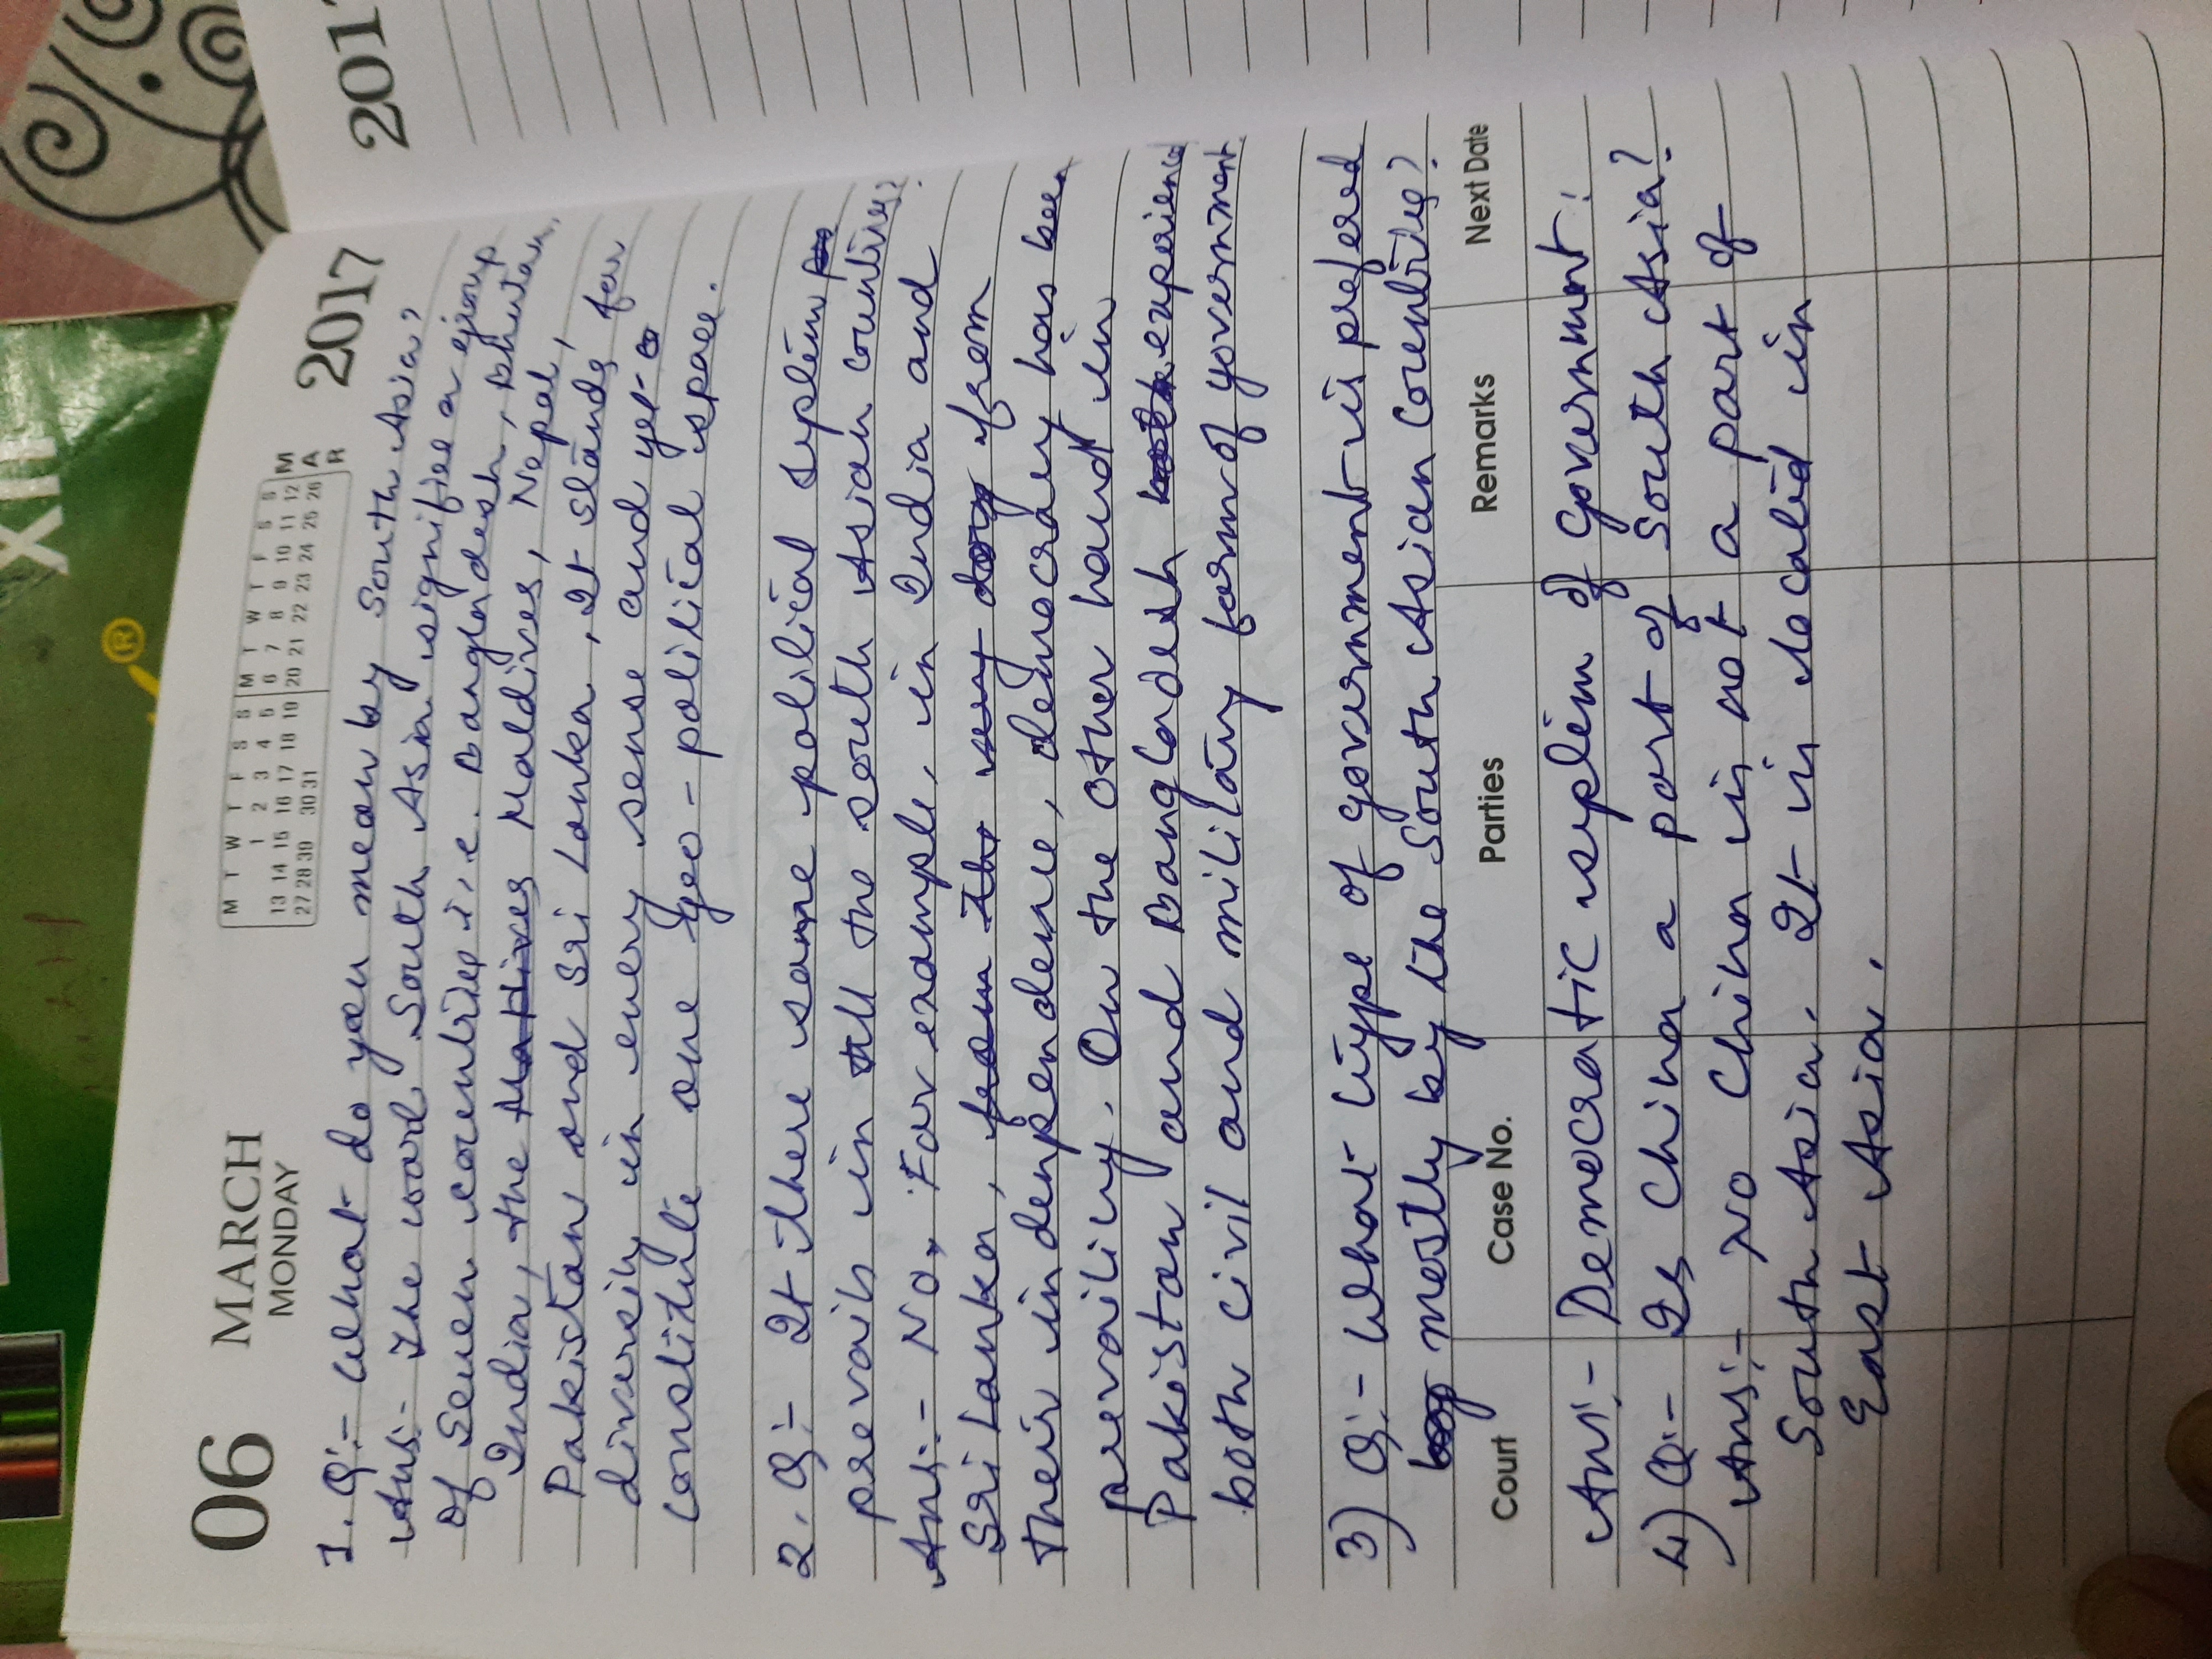 06 MARCH 2017
MONDAY
M T W T F S S M T W T F S S M
1 2 3 4 5 6 7 8 9 10 11 12 A
13 14 15 16 17 18 19 20 21 22 23 24 25 26 R
27 28 29 30 31
1. Q:- What do you mean by South Asia?
Ans:- The word South Asia signifies a group
of Seven countries i.e. Bangladesh, Bhutan,
India, the Maldives, Nepal,
Pakistan and Sri Lanka, It stands for
diversity in every sense and yet
constitute one geo-political space.
2. Q:- It there same political system
prevails in all the south Asian countries?
Ans:- No, For example, in India and
Sri Lanka, from
their independence, democracy has been
prevailing. On the other hand in
Pakistan and Bangladesh experienced
both civil and military form of government
3) Q:- What type of government is prefered
mostly by the South Asian Countries?
Court Case No. Parties Remarks Next Date
Ans:- Democratic system of Government.
4) Q:- Is China a part of South Asia?
Ans:- No China is not a part of
South Asia. It is located in
East Asia.
201
XII
®